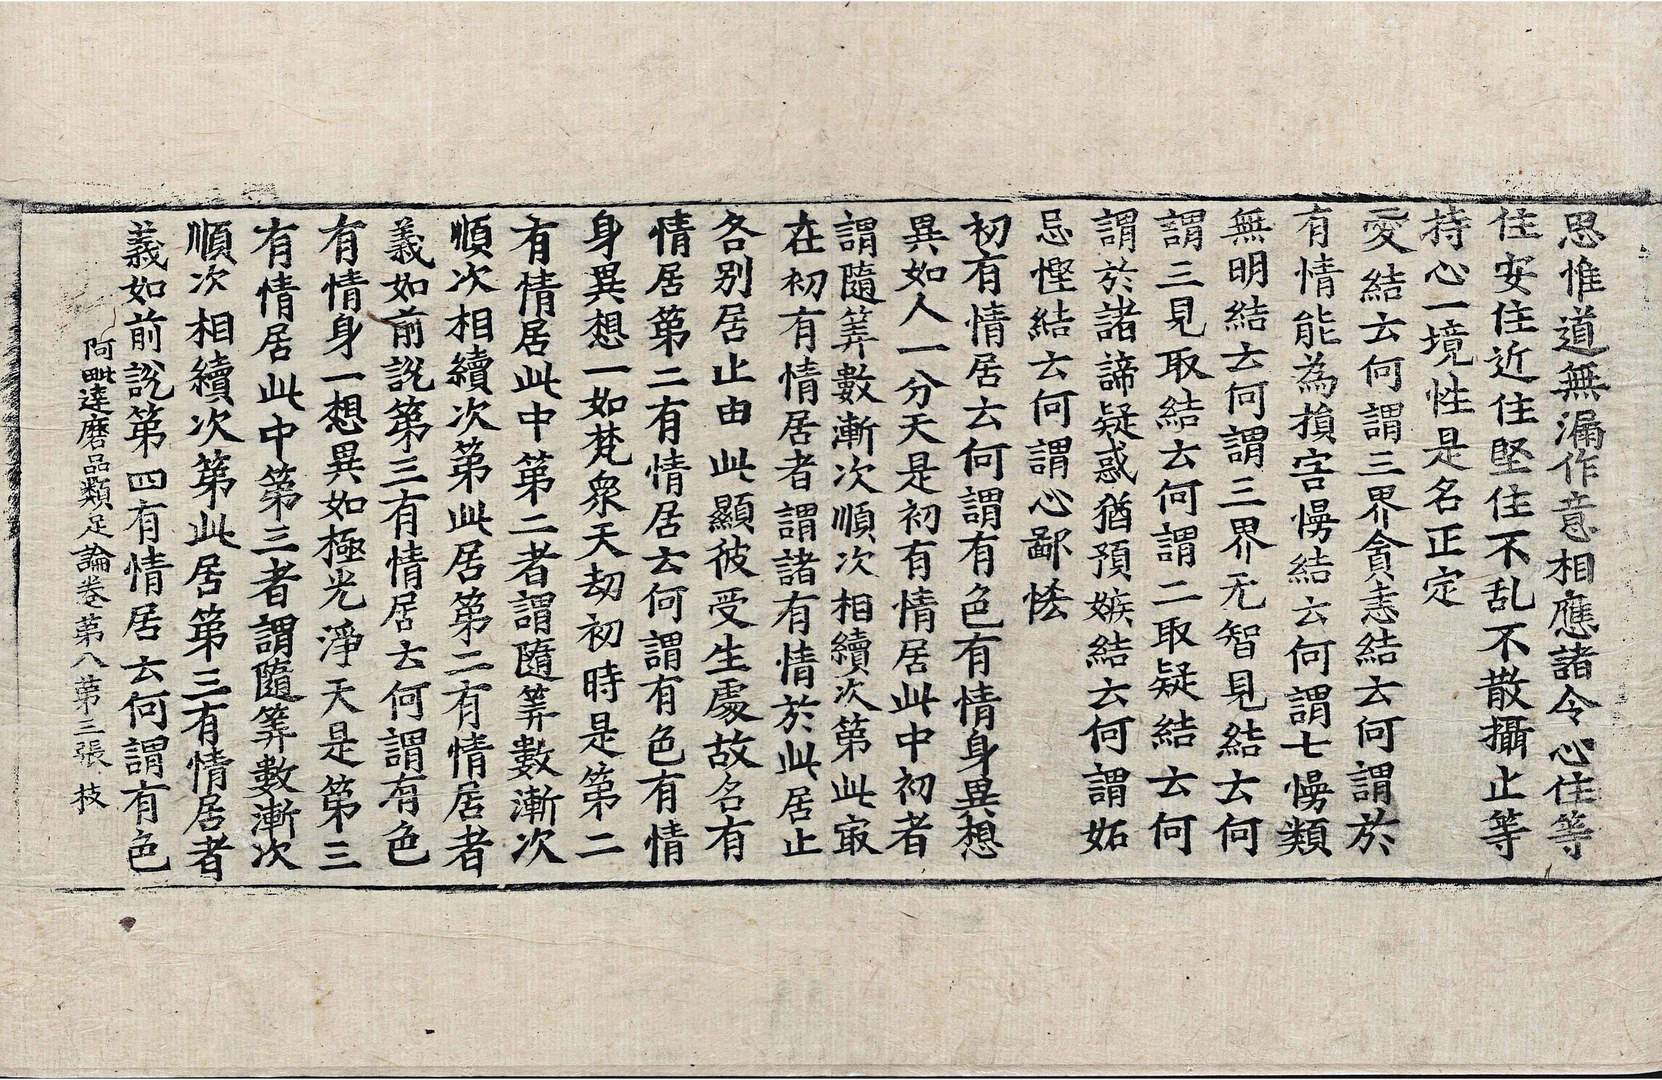 思惟道無漏作意相應諸令心住等
住安住近住堅住不乱不散攝止等
持心一境性是名正定
愛結云何謂三界貪恚結云何謂於
有情能為損害慢結云何謂七慢類
無明結云何謂三界无智見結云何
謂三見取結云何謂二取疑結云何
謂於諸諦疑惑猶預嫉結云何謂妬
忌慳結云何謂心鄙悋
初有情居云何謂有色有情身異想
異如人一分天是初有情居此中初者
謂隨筭數漸次順次相續次第此㝡
在初有情居者謂諸有情於此居止
各别居止由此顯彼受生處故名有
情居第二有情居云何謂有色有情
身異想一如梵衆天劫初時是第二
有情居此中第二者謂隨筭數漸次
順次相續次第此居第二有情居者
義如前說第三有情居云何謂有色
有情身一想異如極光淨天是第三
有情居此中第三者謂隨筭數漸次
順次相續次第此居第三有情居者
義如前說第四有情居云何謂有色
阿毗達磨品類足論卷第八第三張 枝